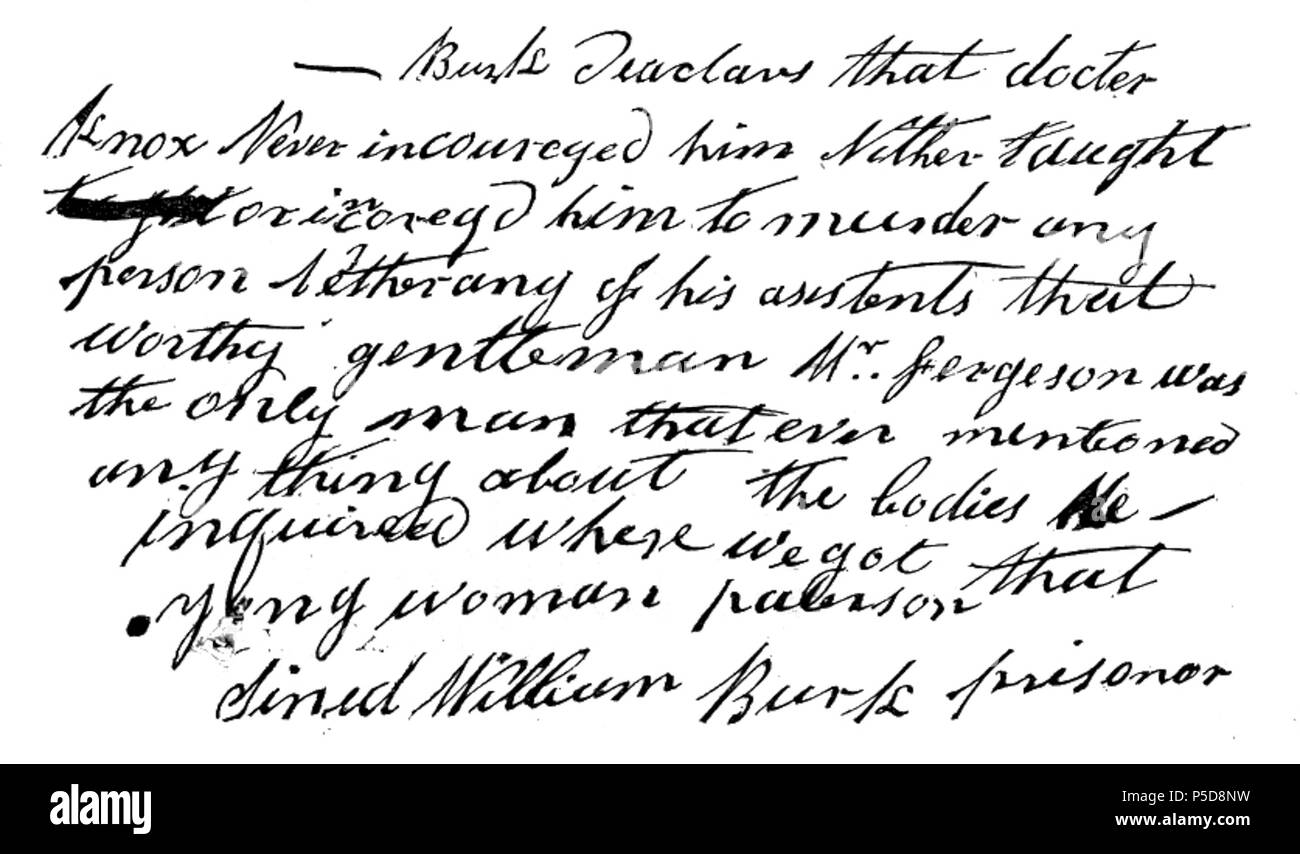 — Burk deaclars that docter
Knox Never incoureged him Nither taught
or incoregd him to murder any
person Nether any of his asistents that
worthy gentleman Mr. Fergeson was
the only man that ever mentioned
any thing about the bodies He –
inquired where we got that
yong woman paterson
sined William Burk prisonor
alamy
Image ID: P5D8NW
www.alamy.com